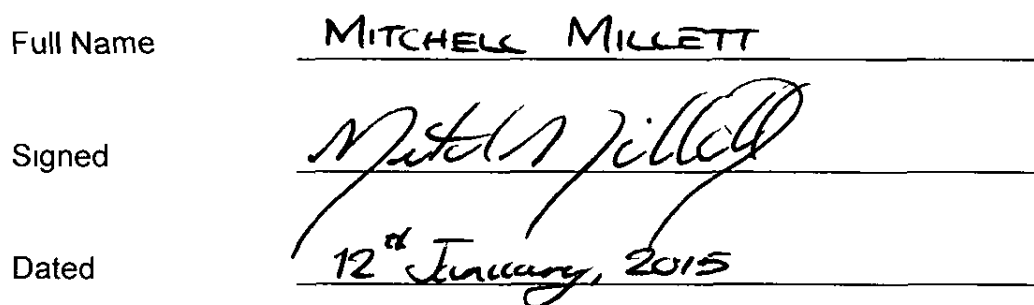 Full Name MITCHELL MILLETT
Signed Mitchell Millett
Dated 12th January, 2015